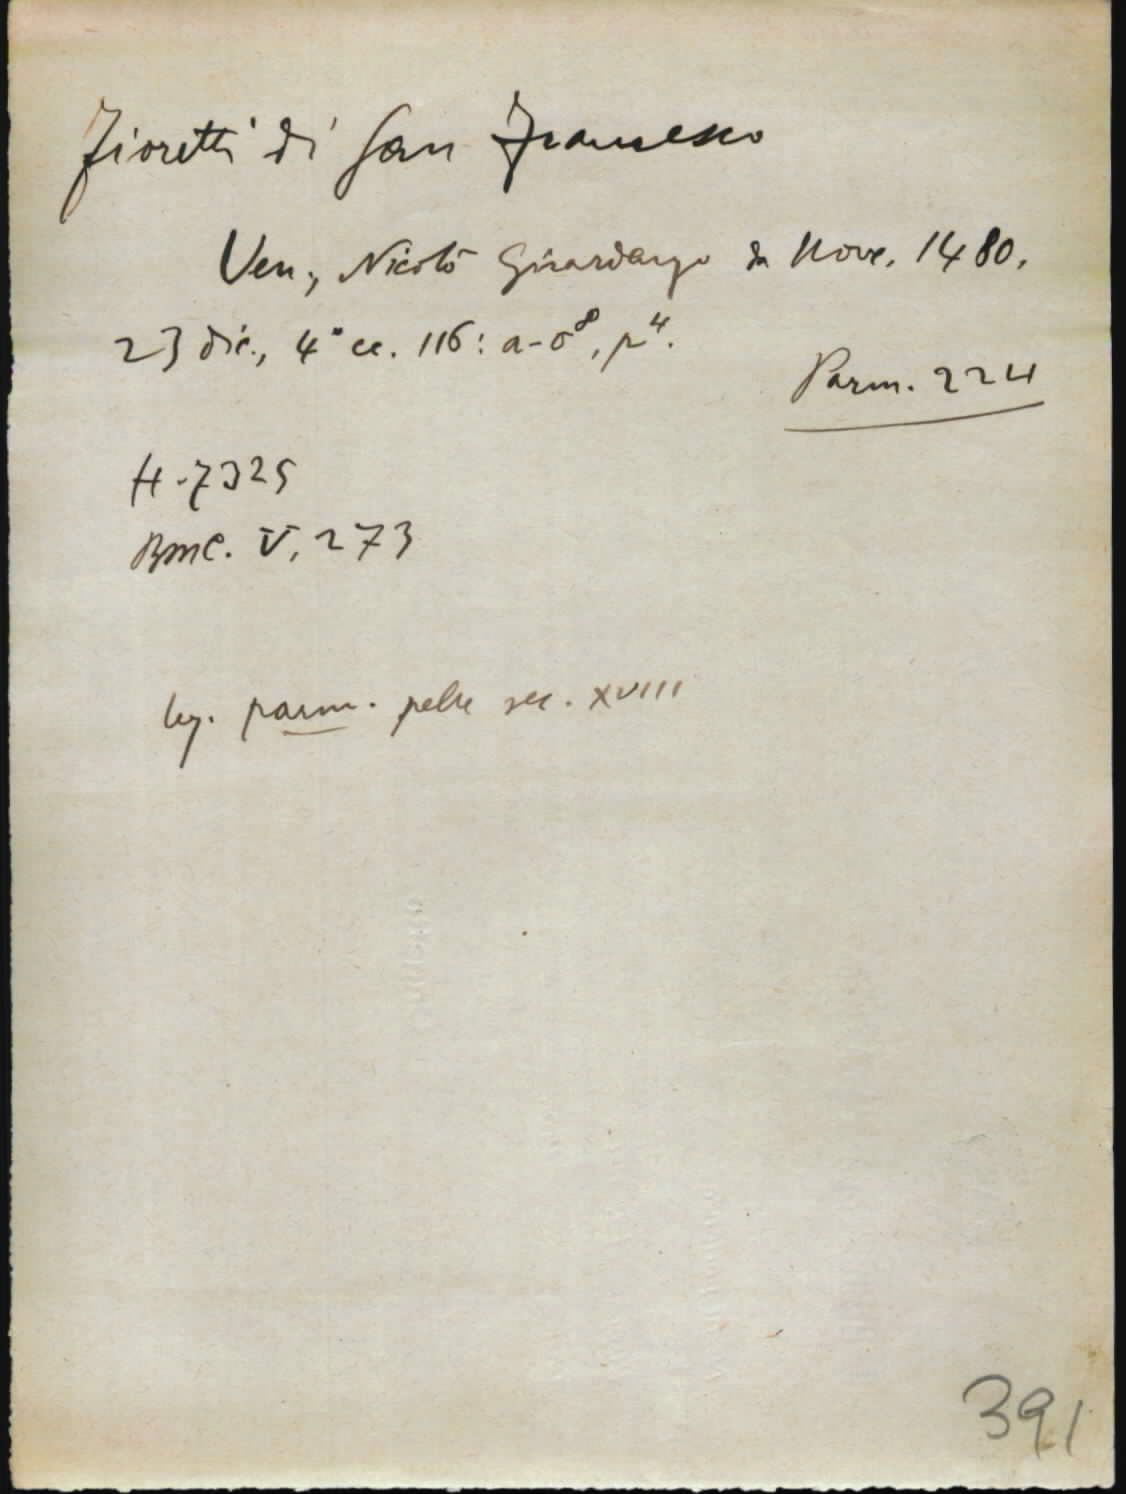 Fioretti di San Francesco
Ven., Nicolò Girardengo da Nove. 1480.
23 dic., 4° cc. 116: a-o⁸, p⁴.
Parm. 224
H-7325
BMC. V, 273
leg. parm. pelle sec. XVIII
391